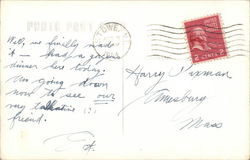 PHOTO POST
Well, we finally made
it — had a
dinner here today.
Am going down
now to see our
very talkative
friend.
Harry Pixman
Amesbury
Mass
2 CENTS 2